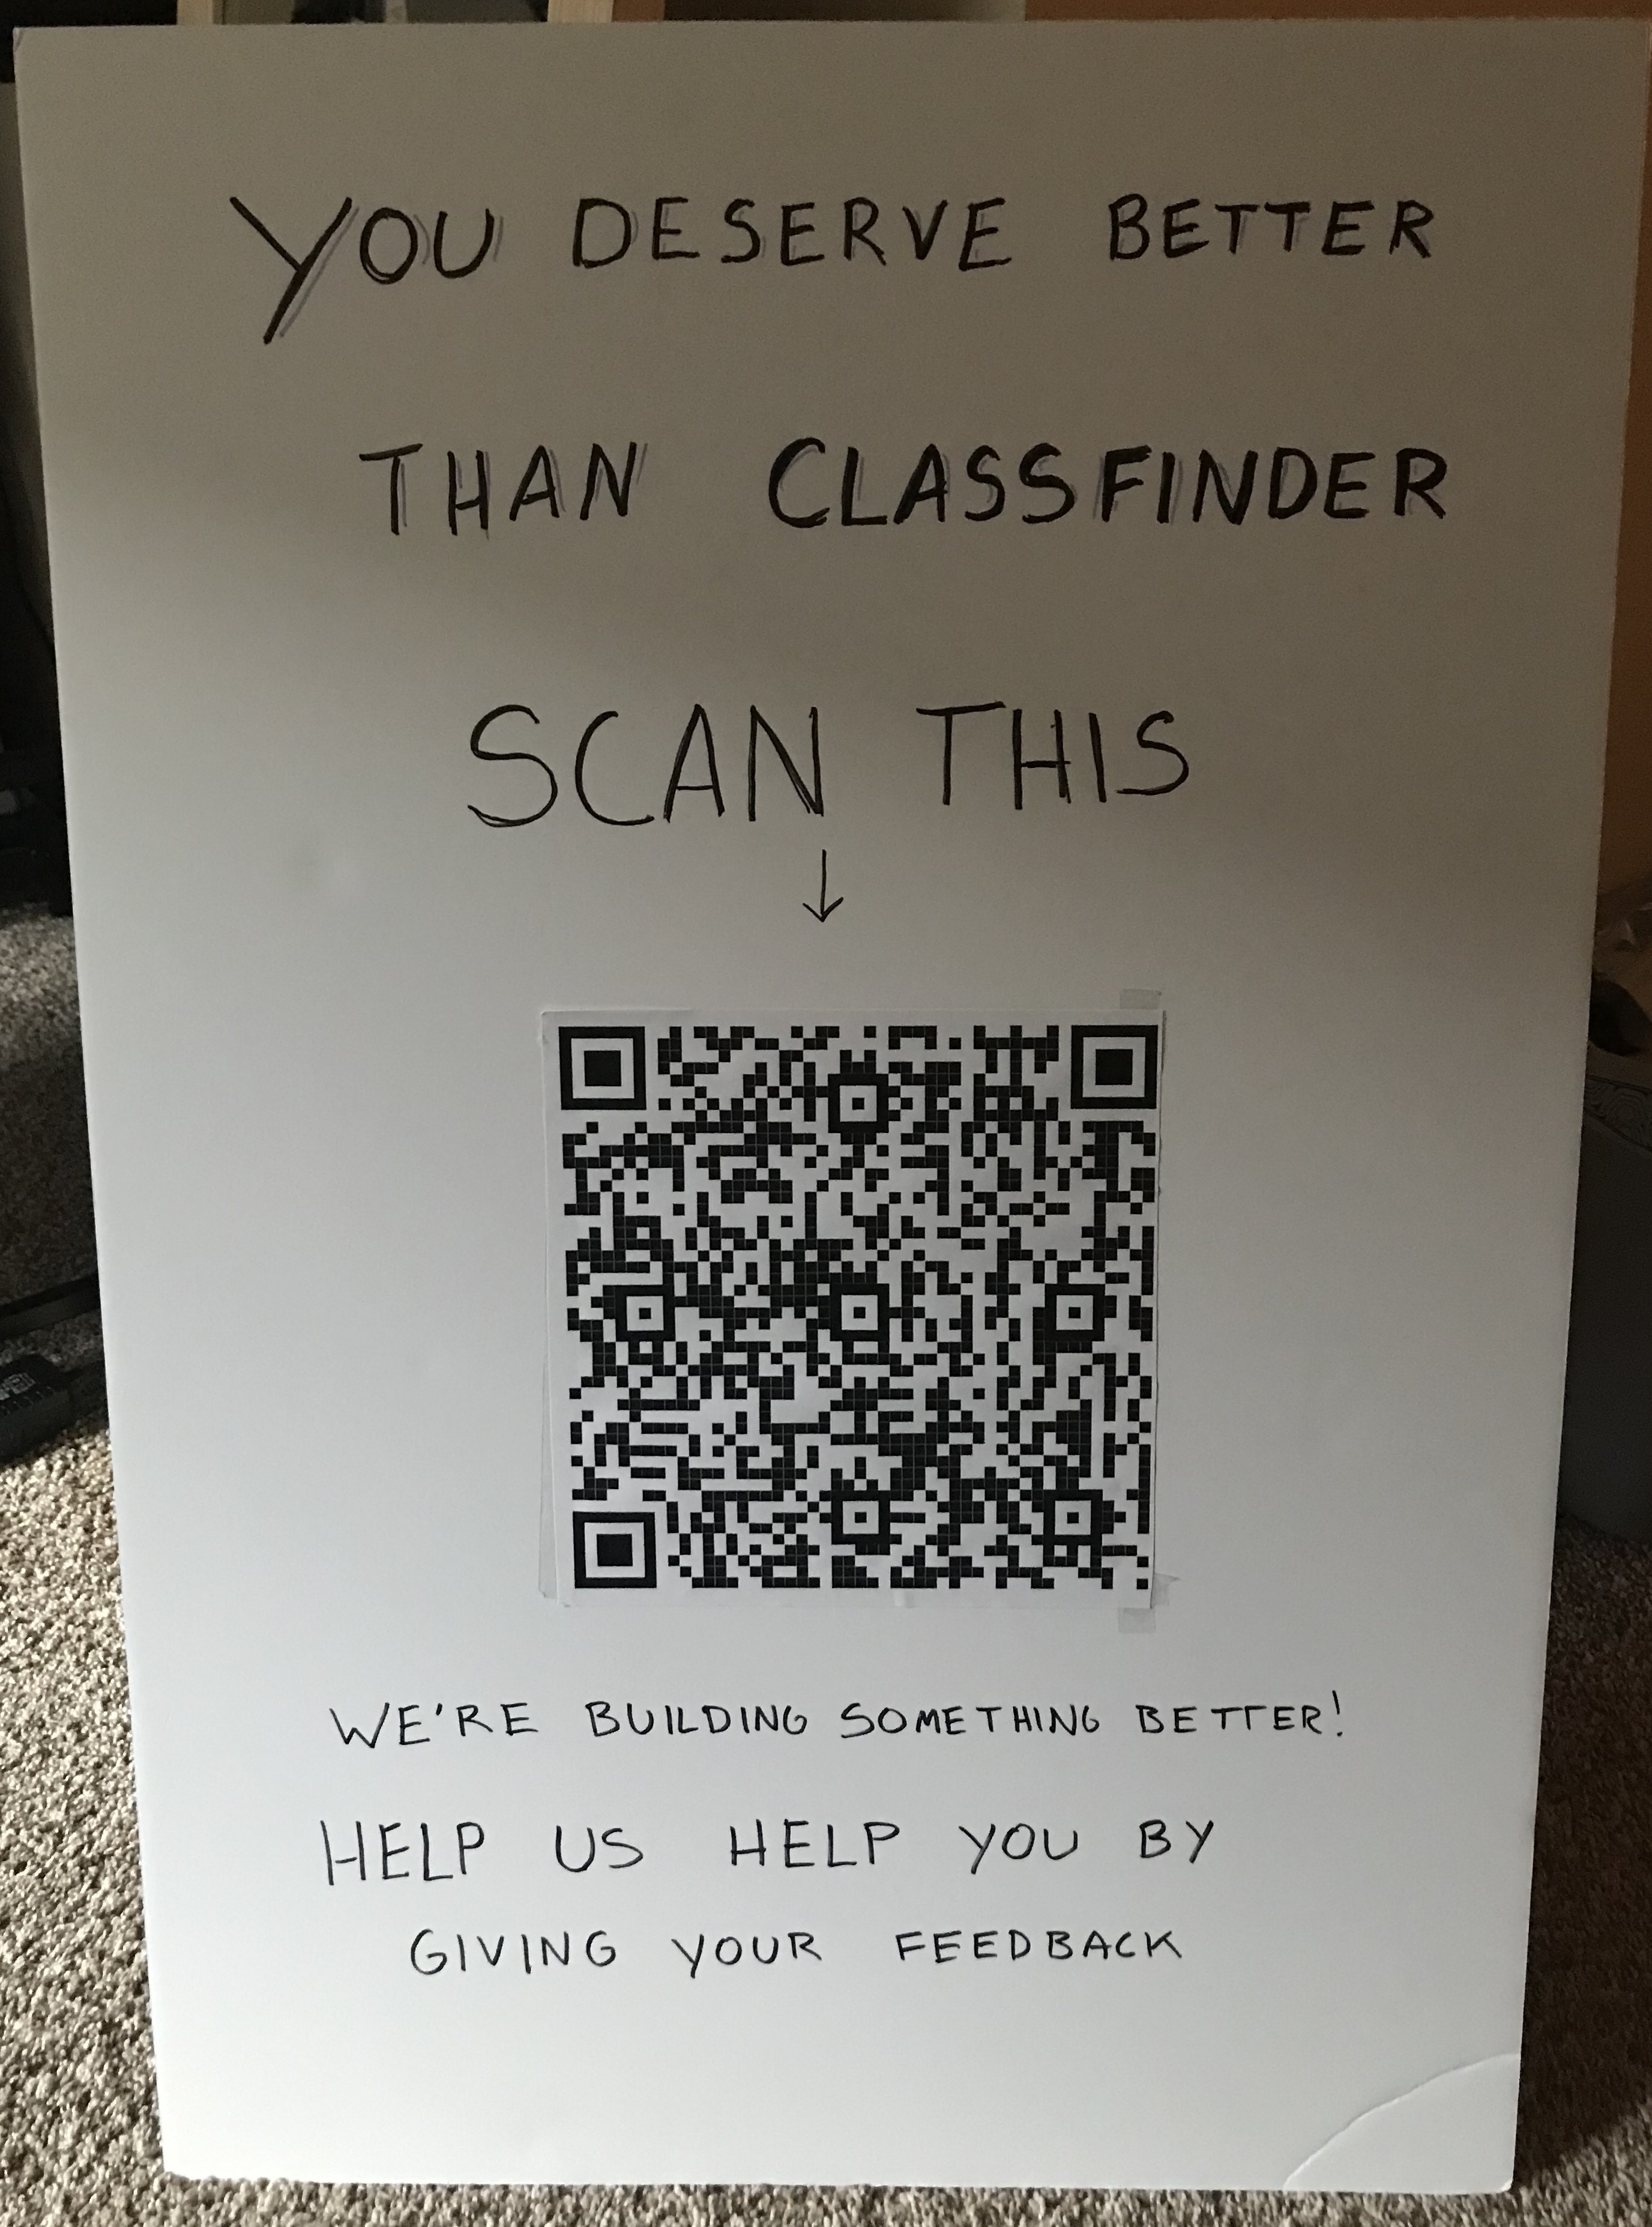 YOU DESERVE BETTER
THAN CLASSFINDER
SCAN THIS
WE'RE BUILDING SOMETHING BETTER!
HELP US HELP YOU BY
GIVING YOUR FEEDBACK